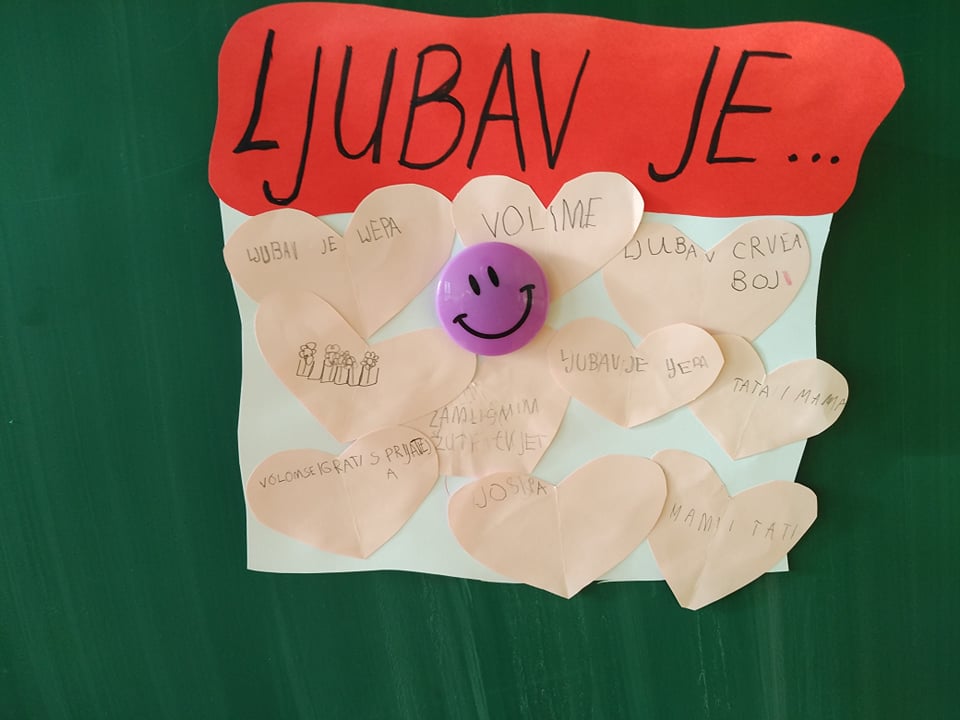 LJUBAV JE...
LJUBAV JE LJEPA
VOLIME
LJUBAV CRVEA
BOJ
LJUBAV JE YEPA
TATA I MAMA
ZAMLISMIM
ŽUTI CVJET
VOLOMSEIGRATI S PRIJATE
A
JOSIPA
MAMI I TATI